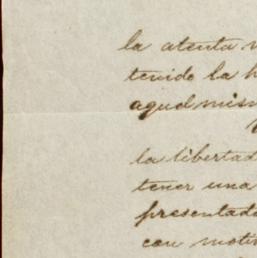 la atenta
tenido la
aquel mism
la libertad
tener una
presentado
con moti